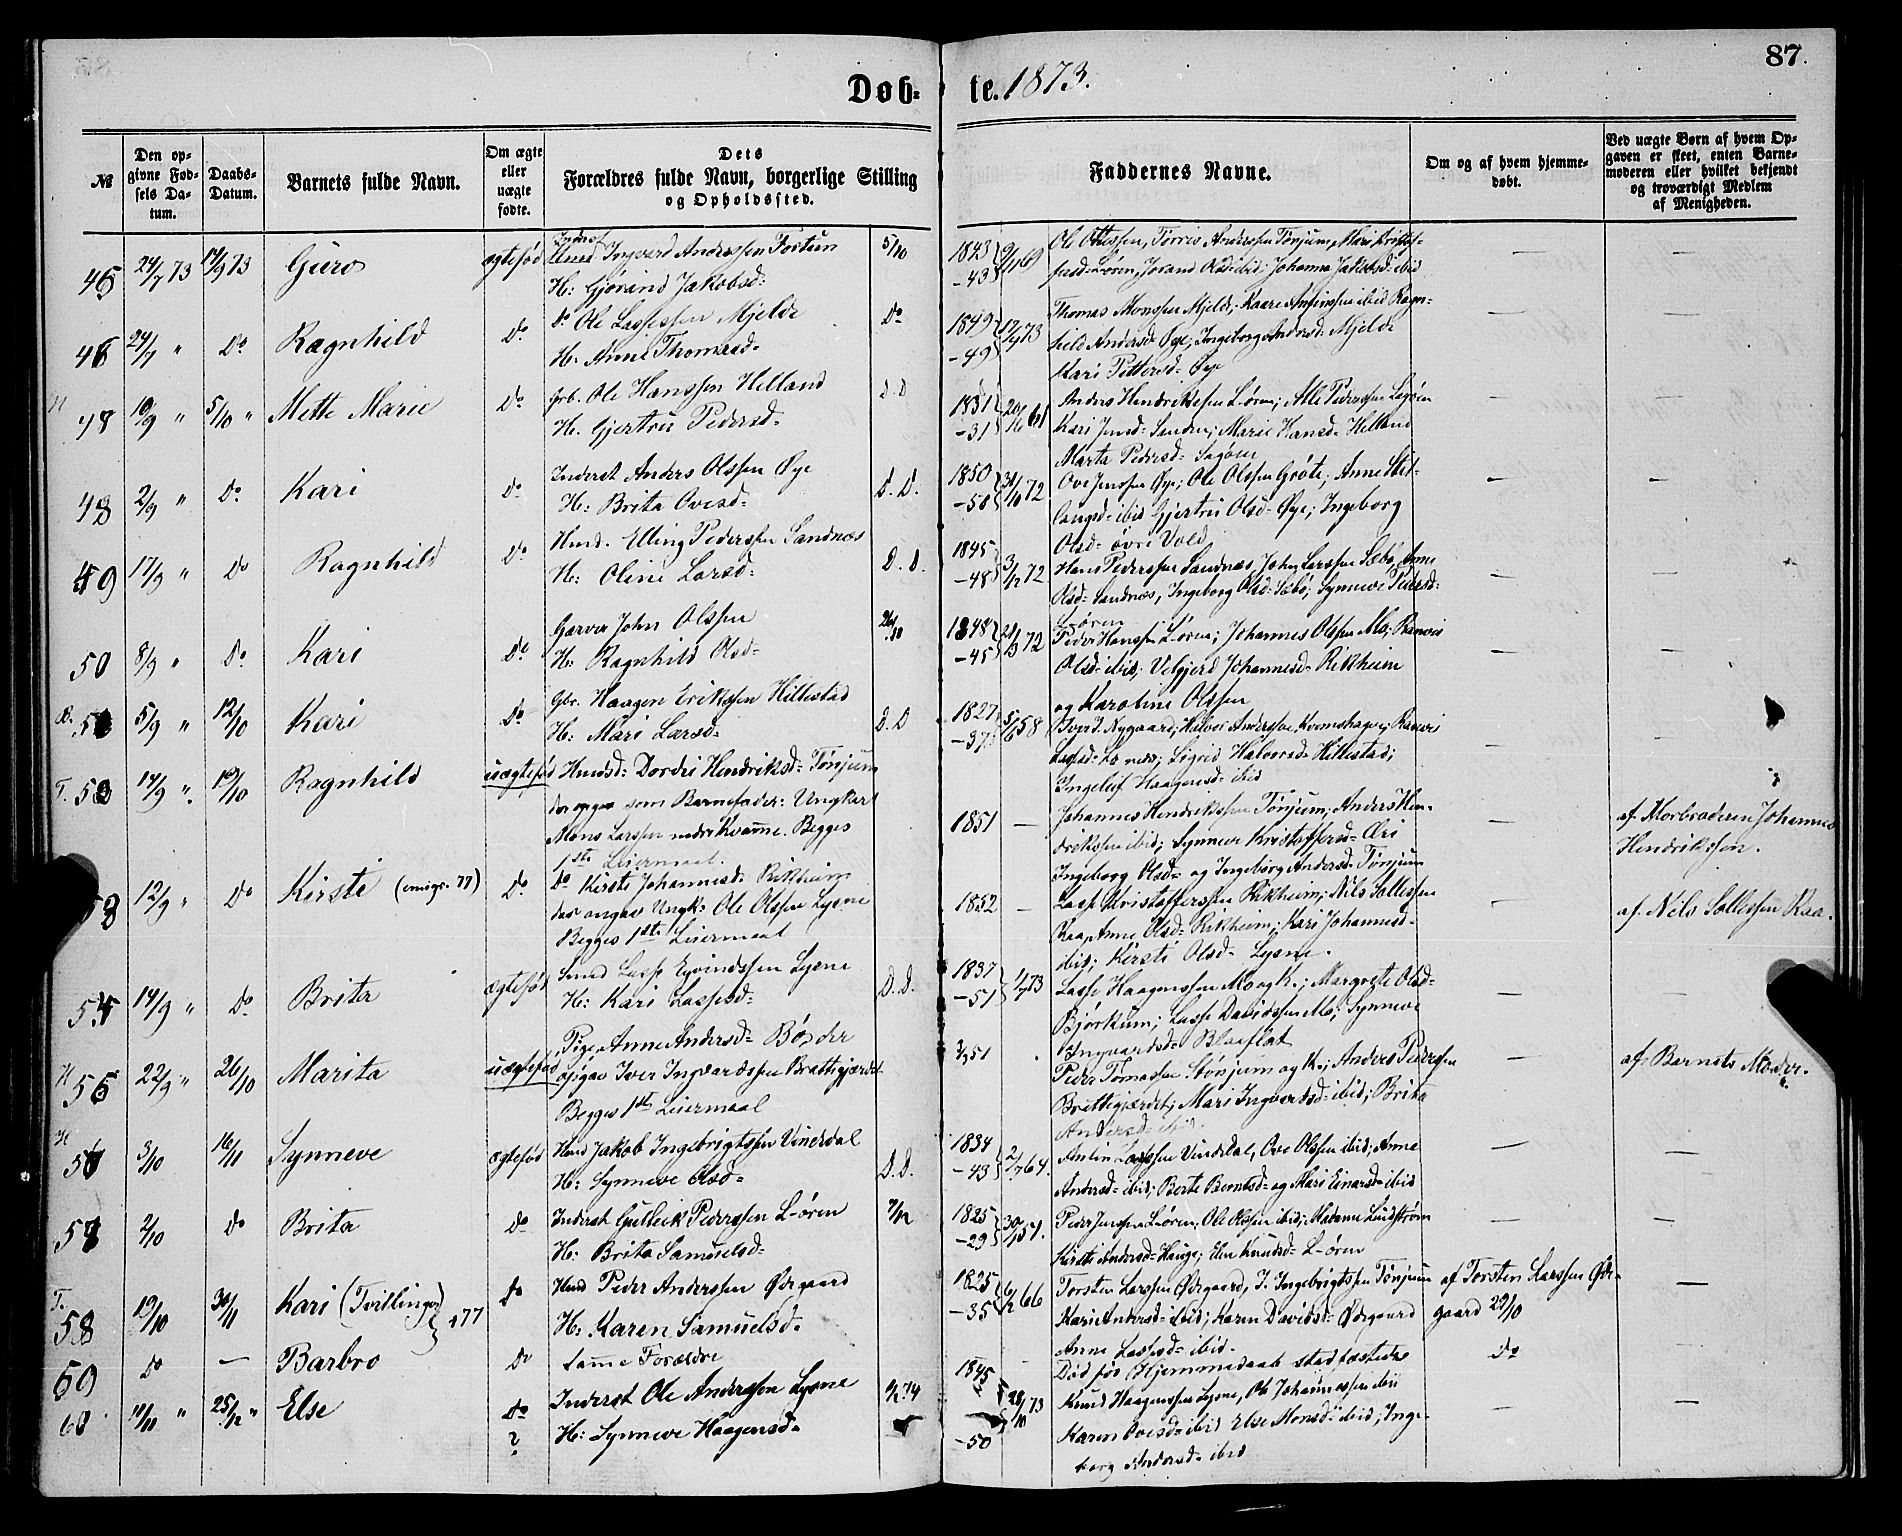 87.
Døb- te. 1873.
№
Den opgivne Fødsels Datum.
Daabs-Datum.
Barnets fulde Navn.
Om ægte eller uægte fødte.
Dets Forældres fulde Navn, borgerlige Stilling og Opholdssted.
Faddernes Navne.
Om og af hvem hjemmedøbt.
Ved uægte Børn af hvem Opgaven er skeet, enten Barnemoderen eller hvilket bekjendt og troværdigt Medlem af Menigheden.
45 24/7 73 14/9 73 Guro ægtefød Inderst Ingvard Anderssen Fortun 5/10
H: Gjørand Jakobsd=
1843 -43 9/1 69
Ole Ottessen, Tørris Anderssen Tønjum, Mari Kristof-
fersd= L-ören, Jorand Olsd= ibid; Johanna Jakobsd= ibid
46 24/7 " Do Ragnhild Do Do Ole Lassessen Mjelde Do
H: Anne Thomasd=
1849 -49 73
Thomas Monssen Mjelde, Kaare ibid Ragn-
hild Andersd= Øye; Ingeborg Andersd= Mjelde
Kari Pettersd= Øye
48 10/9 " 5/10 " Mette Marie Do Grb. Ole Hanssen Helland D.D
H. Gjertru Pedersd=
1831 -31 61
Anders Hendrikssen L-ören; Atle Pederssen
Kari Jensd= Sanden; Marie Hansd= Helland
Marta Pedersd=
48 2/9 " Do Kari Do Inderst Anders Olssen Øye D.D.
H: Brita Ovesd=
1850 -50 30/10 72
Ove Jenssen Øye; Ole Olssen Grøte; Anne
ibid Gjertru Olsd= Øye; Ingeborg
Olsd= övre Vold
49 17/9 " Do Ragnhild Do Hmd. Elling Pederssen Sandnæs D.D.
H: Oline Larsd=
1845 -48 72
Hans Pederssen Sandnæs, John Larssen Sæbö, Anne
Olsd= Sandnæs, Ingeborg Olsd= Sæbö; Synneve Pedersd=
L-ören
50 8/9 " Do Kari Do Garver John Olssen 26/10
H: Ragnhild Olsd=
1848 -45 72
Peder Hanssen L-ören; Johannes Olssen Mo; Ranvei
Olsd= ibid; Velgjerd Johannesd= Rikheim
og Karoline Olssen
B. 51 5/9 " 12/10 Kari Do Gbr. Haagen Erikssen Hillestad D.D
H: Mari Larsd=
1827 -37 58
Iver J. Nygaard; Halvor Anderssen Kvamshagen; Ranvei
Sigrid Halvorsd= Hillestad;
Ingeleif Haagensd= ibid
T. 52 14/9 ". 19/10 Ragnhild uægtefød Hmdsd= Dordei Hendriksd= Tønjum
der opgav som Barnefader: Ungkarl
Mons Larssen nedre Kvamme. Begges
1ste Leiermaal.
1851 —
Johannes Hendrikssen Tønjum; Anders Hen-
drikssen ibid; Synneve Kristoffersd= Æri
Ingeborg Olsd= og Ingeborg Andersd= Tønjum
af Morbroderen Johannes
Hendrikssen.
58 12/9 " Do Kirsti (emigr. 77) Do Do Kirsti Johannesd= Rikheim
der angav Ungk: Ole Olssen Lysne
Begges 1ste Leiermaal
1852 —
Lasse Kristofferssen Rikheim; Nils Sallessen
Raa; Anne Olsd= Rikheim; Kari Johannesd=
ibid; Kirsti Olsd= Lysne.
af Nils Sallessen Raa.
54 14/9 " Do Brita ægtefød Smed Lasse Eyvindssen Lysne D.D.
H: Kari Lassesd=
1837 -51 73
Lasse Haagenssen Mo og K.; Margrete Olsd=
Bjørkum; Lasse Davidssen Mo; Synneve
Ingvardsd= Blaaflat
H 55 22/9 " 26/10 Marita uægtefød Pige Anne Andersd= Böxder
opgav Iver Ingvardssen Brattegjærdet
Begges 1ste Leiermaal
51
Peder Tomassen Stönjum og K.; Anders Pederssen
Brattegjærdet; Mari Ingvardsd= ibid; Brita
Andersd= ibid.
af Barnets Moder.
H 56 3/10 16/11 Synneve ægtefød Hmd Jakob Ingebrigtssen Vindedal D.D.
H: Synneve Olsd=
1834 -43 2/7 64.
Vindedal, Ove Olssen ibid; Anne
Andersd= ibid; Berte Berntsd= og Mari Einarsd= ibid
57 2/10 Do Brita Do Inderst Gulleik Pederssen L-ören 7/12
H: Brita Samuelsd=
1825 -29 51.
Peder Jenssen L-ören; Ole Olssen ibid; Madame Lindström
Kirsti Andersd= Hauge; Elen Knudsd= L-ören
T. 58 19/10 30/11 Kari (Tvillinger) +77 Do Hmd Peder Anderssen Ødegaard
H: Karen Samuelsd=
1825 -35 66
Torsten Larssen Ødegaard, J. Ingebrigtssen Tønjum
Kari Andersd= ibid; Karen Davidsd= Ødegaard
Anne Lassesd= ibid.
af Torsten Larssen Øde-
gaard 29/10
59 Do — Barbro Do Samme Forældre
Död før Hjemmedaab stadfæstedes Do
60 11/11 " 25/12 " Else Do ? Inderst Ole Anderssen Lysne 74
H: Synneve Haagensd=
1845 -50 28/10 73
Knud Haagenssen Lysne, Ole Johannessen ibid
Karen Ovesd= ibid Else Monsd= ibid; Inge-
borg Andersd= ibid